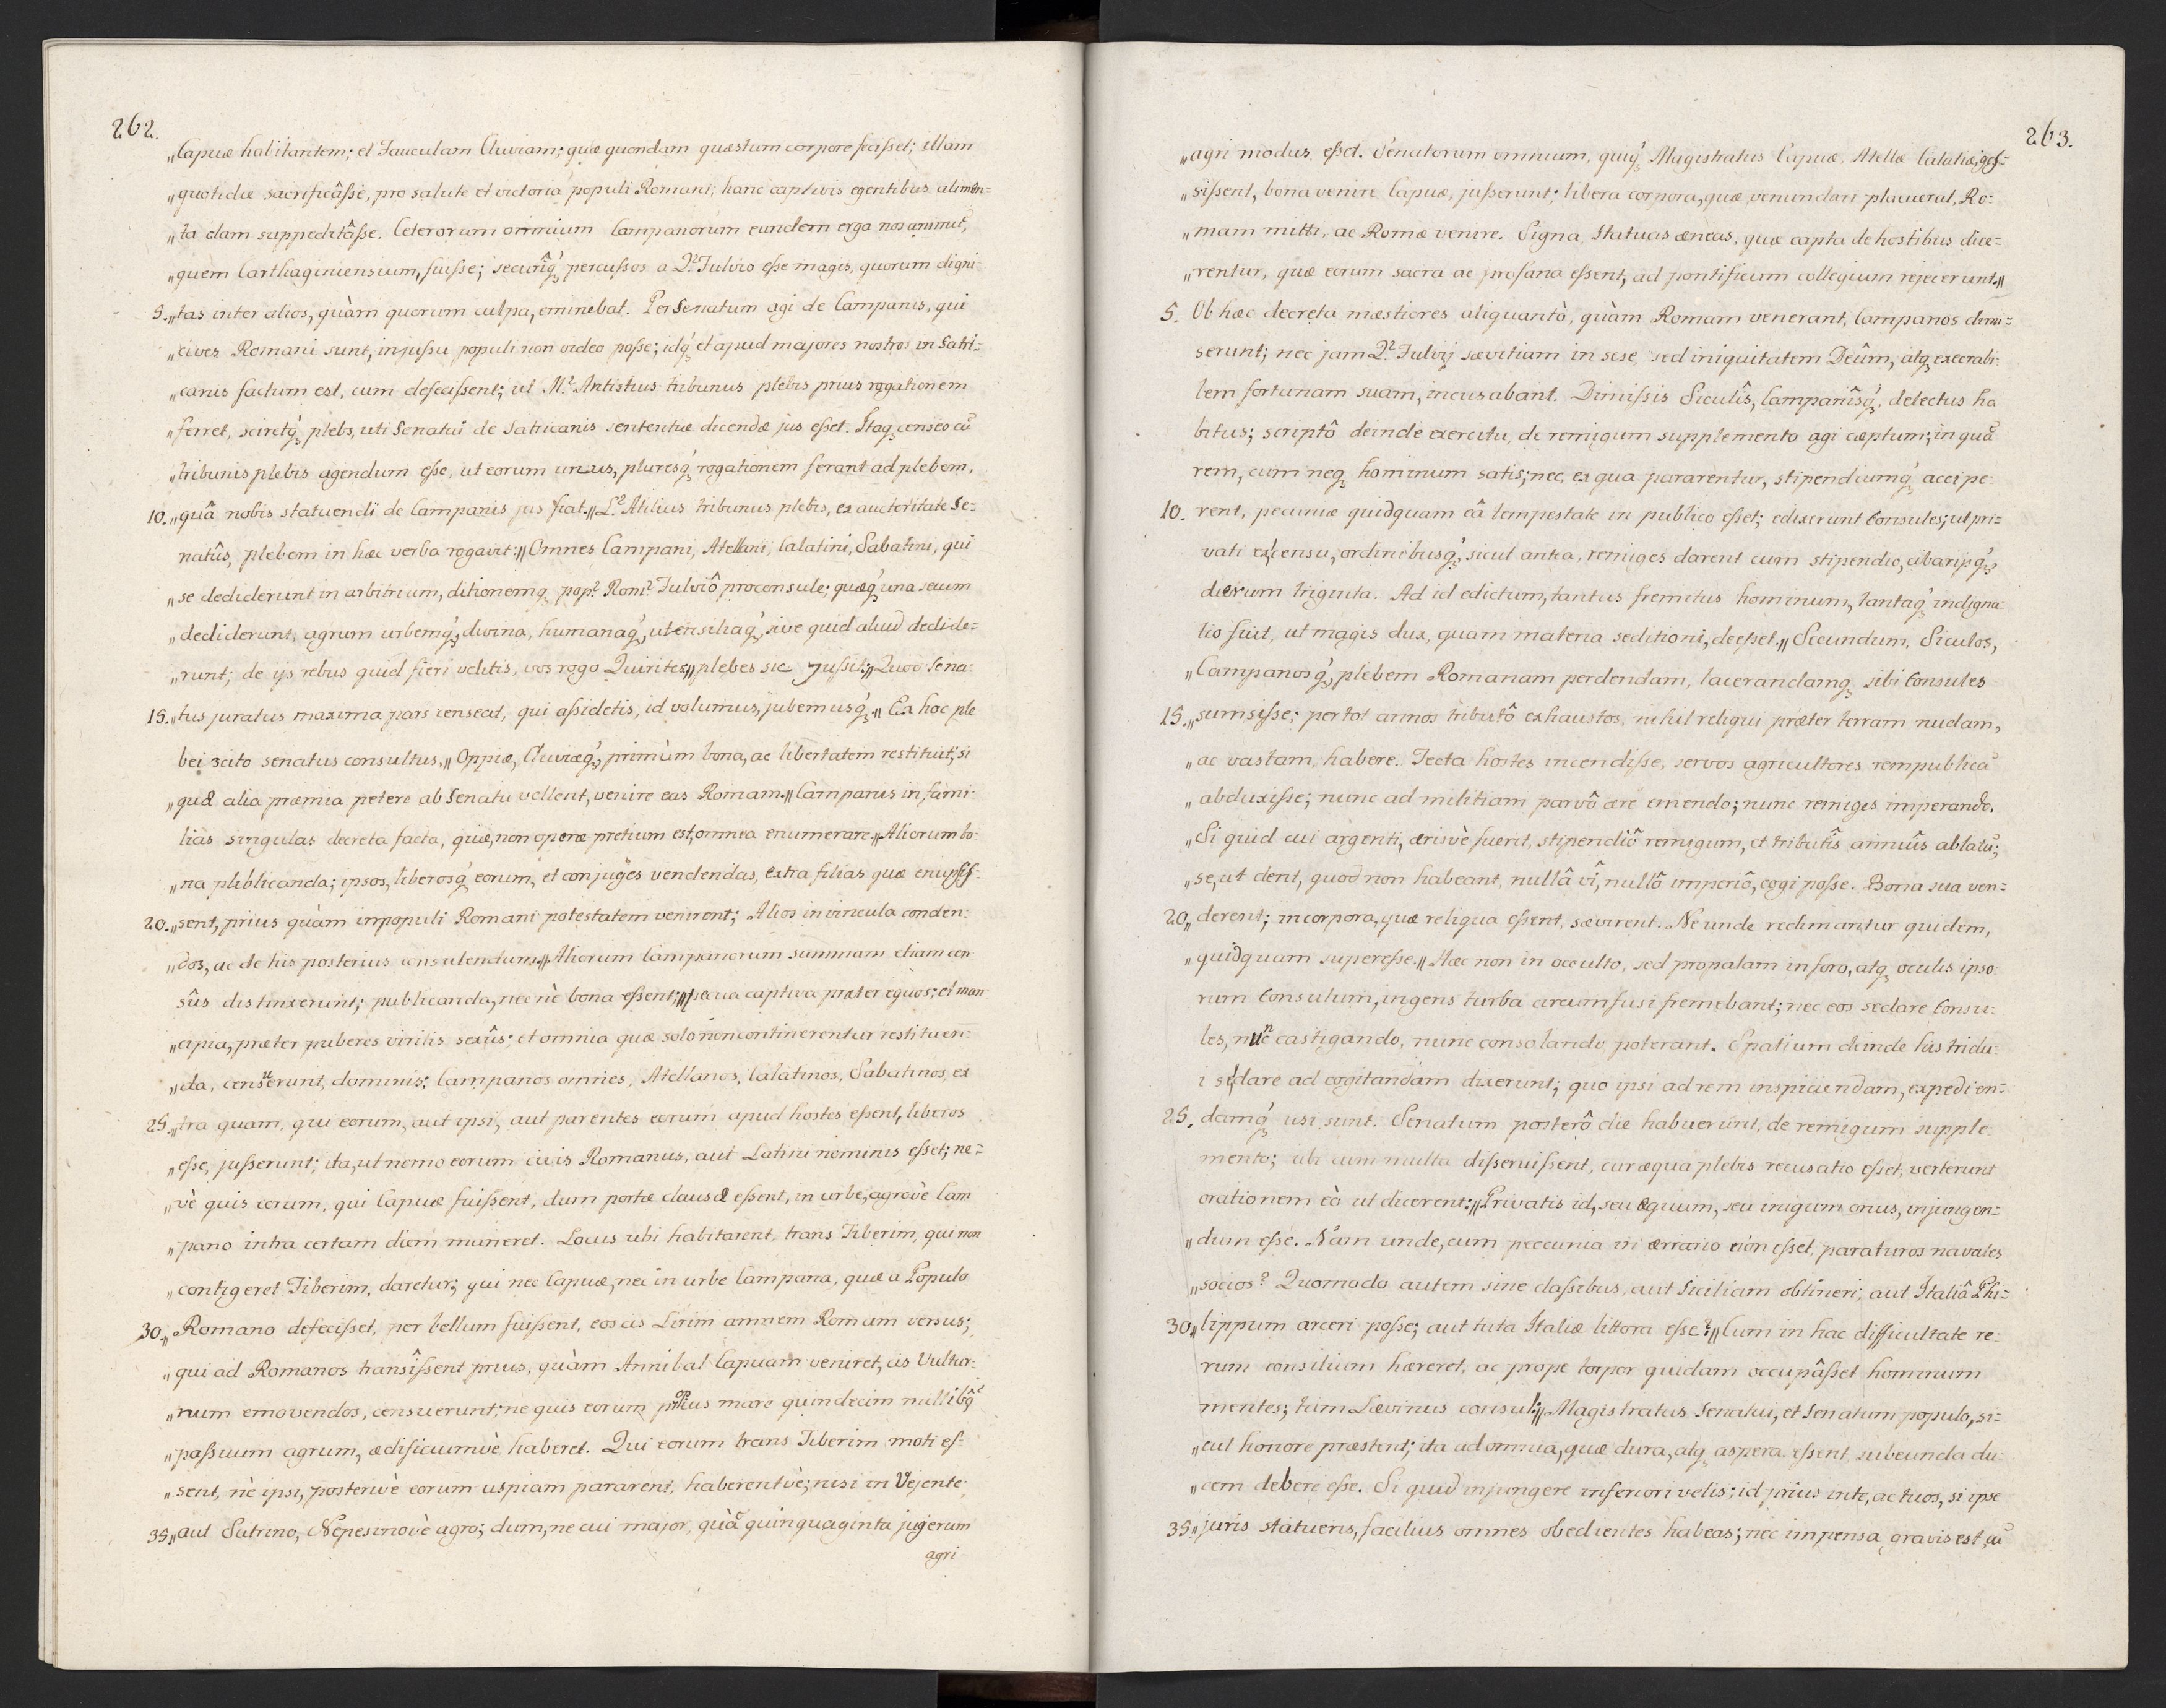 262.
„Capuæ habitantem; et Fauculam Cluviam; quæ quondam quæstum corpore fecisset; illam
„quotidie sacrificâsse, pro salute et victoria populi Romani; hanc captivis egentibus alimen=
„ta clam suppeditâsse. Ceterorum omnium Campanorum eundem erga nos animū,
„quem Carthaginiensium, fuisse; securîq́ʒ percussos a Q.̊ Fulvio esse magis, quorum digni=
5. „tas inter alios, quàm quorum culpa, eminebat. Per Senatum agi de Campanis, qui
„cives Romani sunt, injussu populi non video posse; idq́ʒ et apud majores nostros in Satri=
„canis factum est, cum defecissent; ut M.̊ Antistius tribunus plebis prius rogationem
„ferret, sciretq́ʒ plebs, uti Senatui de Satricanis sententiæ dicendæ jus esset. Itaqʒ censeo cū
„tribunis plebis agendum esse, ut eorum unus, pluresq́ʒ rogationem ferant ad plebem,
10. „quâ nobis statuendi de Campanis jus fiat.„ L.̊ Atilius tribunus plebis, ex auctoritate Se=
natûs, plebem in hæc verba rogavit:„Omnes Campani, Atellani, Calatini, Sabatini, qui
„se dediderunt in arbitrium, ditionemqʒ pop.̊ Rom.̊ Fulviô proconsule; quæq́ʒ una secum
„dediderunt, agrum urbemq́ʒ, divina, humanaq́ʒ, utensiliaq́ʒ, sive quid aliud dedide=
„runt; de ijs rebus quid fieri velitis, vos rogo Quirites„ plebes sic Jussit:„Quod Sena=
15. „tus juratus maxima pars censeat, qui assidetis, id volumus, jubemusq́ʒ.„ Ex hoc ple
bei scito senatus consultus,„ Oppiæ, Cluviæq́ʒ, primùm bona, ac libertatem restituit; si
„quæ alia præmia petere ab Senatu vellent, venire eas Romam.„ Campanis in fami=
lias singulas decreta facta, quæ, non operæ pretium est, omnia enumerare.„ Aliorum bo=
„na publicanda; ipsos, liberosq́ʒ eorum, et conjuges vendendas, extra filias quæ enupsis=
20. „sent, prius quàm in populi Romani potestatem venirent; Alios in vincula conden=
„dos, ac de his posterius consulendum.„ Aliorum Campanorum summam etiam cen
sûs distinxerunt; publicanda, nec nè bona essent;„ pecua captiva præter equos; et man=
„cipia, præter puberes virilis sexûs; et omnia quæ solo non continerentur restituen=
„da, censuerunt, dominis; Campanos omnes, Atellanos, Calatinos, Sabatinos, ex
25. „tra quam, qui eorum, aut ipsi, aut parentes eorum apud hostes essent, liberos
„esse, jusserunt; ita, ut nemo eorum civis Romanus, aut Latini nominis esset; ne=
„vè quis eorum, qui Capuæ fuissent, dum portæ clausæ essent, in urbe, agrovè Cam
„pano intra certam diem maneret. Locus ubi habitarent, trans Tiberim, qui non
„contigeret Tiberim, daretur; qui nec Capuæ, nec in urbe Campana, quæ a Populo
30. „Romano defecisset, per bellum fuissent, eos cis Lirim amnem Romam versus;
„qui ad Romanos transîssent prius, quàm Annibal Capuam veniret, cis Vultur=
„num emovendos, censuerunt; ne quis eorum propius mare quindecim millibq̂ʒ
„passuum agrum, ædificiumvè haberet. Qui eorum trans Tiberim moti es=
„sent, nè ipsi, posterivè eorum uspiam pararent, haberentvè; nisi in Vejente,
35. „aut Sutrino, Nepesinovè agro; dum, ne cui major, quā quinquaginta jugerum
agri
263.
„agri modus esset. Senatorum omnium, quiq́ʒ Magistratus Capuæ, Atellæ Calatiæ, ges=
„sissent, bona venire Capuæ, jusserunt; libera corpora, quæ venundari placuerat, Ro=
„mam mitti, ac Romæ venire. Signa, statuas æneas, quæ capta de hostibus dice=
„rentur, quæ eorum sacra ac profana essent, ad pontificum collegium rejecerunt.„
5. Ob hæc decreta mæstiores aliquantò, quàm Romam venerant, Campanos dimi=
serunt; nec jam Q.̊ Fulvij sævitiam in sese, sed iniquitatem Deûm, atqʒ execrabi
lem fortunam suam, incusabant. Dimissis Siculîs, Campanîsq́ʒ, delectus ha
bitus; scriptô deinde exercitu, de remigum supplemento agi cæptum; in quā
rem, cum neqʒ hominum satis; nec, ex qua pararentur, stipendiumq́ʒ accipe=
10. rent, pecuniæ quidquam eâ tempestate in publico esset; edixerunt Consules; ut pri=
vati ex censu, ordinibusq́ʒ, sicut antea, remiges darent cum stipendio, cibarijsq́ʒ,
dierum triginta. Ad id edictum, tantus fremitus hominum, tantaq́ʒ indigna=
tio fuit, ut magis dux, quam materia seditioni, deesset.„ Secundum, Siculos,
„Campanosq́ʒ, plebem Romanam perdendam, lacerandamqʒ sibi Consules
15. „sumsisse; per tot annos tributô exhaustos, nihil reliqui præter terram nudam,
„ac vastam, habere. Tecta hostes incendisse, servos agricultores rempublicā
„abduxisse; nunc ad militiam parvô ære emendo; nunc remiges imperando.
„Si quid cui argenti, ærisvè fuerit, stipendiô remigum, et tributîs annuîs ablatū;
„se, ut dent, quod non habeant, nullâ vî, nullô imperiô, cogi posse. Bona sua ven=
20. „derent; in corpora, quæ reliqua essent, sævirent. Ne unde redimantur quidem,
„quidquam superesse.„ Hæc non in occulto, sed propalam in foro, atqʒ oculis ipso=
rum Consulum, ingens turba circumfusi fremebant; nec eos sedare Consu=
les, nunc castigando, nunc consolando poterant. Spatium deinde his tridu=
i se dare ad cogitandam dixerunt; quo ipsi ad rem inspiciendam, expedien=
25. damq́ʒ usi sunt. Senatum posterô die habuerunt, de remigum supple=
mento; ubi cum multa disseruissent, cur æqua plebis recusatio esset, verterunt
orationem eò ut dicerent:„Privatis id, seu æquum, seu iniqum onus, injungen=
„dum esse. Nam unde, cum peccunia in ærrario non esset, paraturos navales
„socios? Quomodo autem sine classibus, aut Siciliam obtineri, aut Italiâ Phi=
30. „lippum arceri posse; aut tuta Italiæ littora esse?„ Cum in hac difficultate re=
rum consilium hæreret, ac prope torpor quidam occupâsset hominum
mentes; tum Lævinus consul:„ Magistratus Senatui, et Senatum populo, si=
„cut honore præstent; ita ad omnia, quæ dura, atqʒ aspera essent, subeunda du=
„cem debere esse. Si quid injungere inferiori velis; id prius in te, ac tuos, si ipse
35. „juris statueris, facilius omnes obedientes habeas; nec impensa gravis est, cū